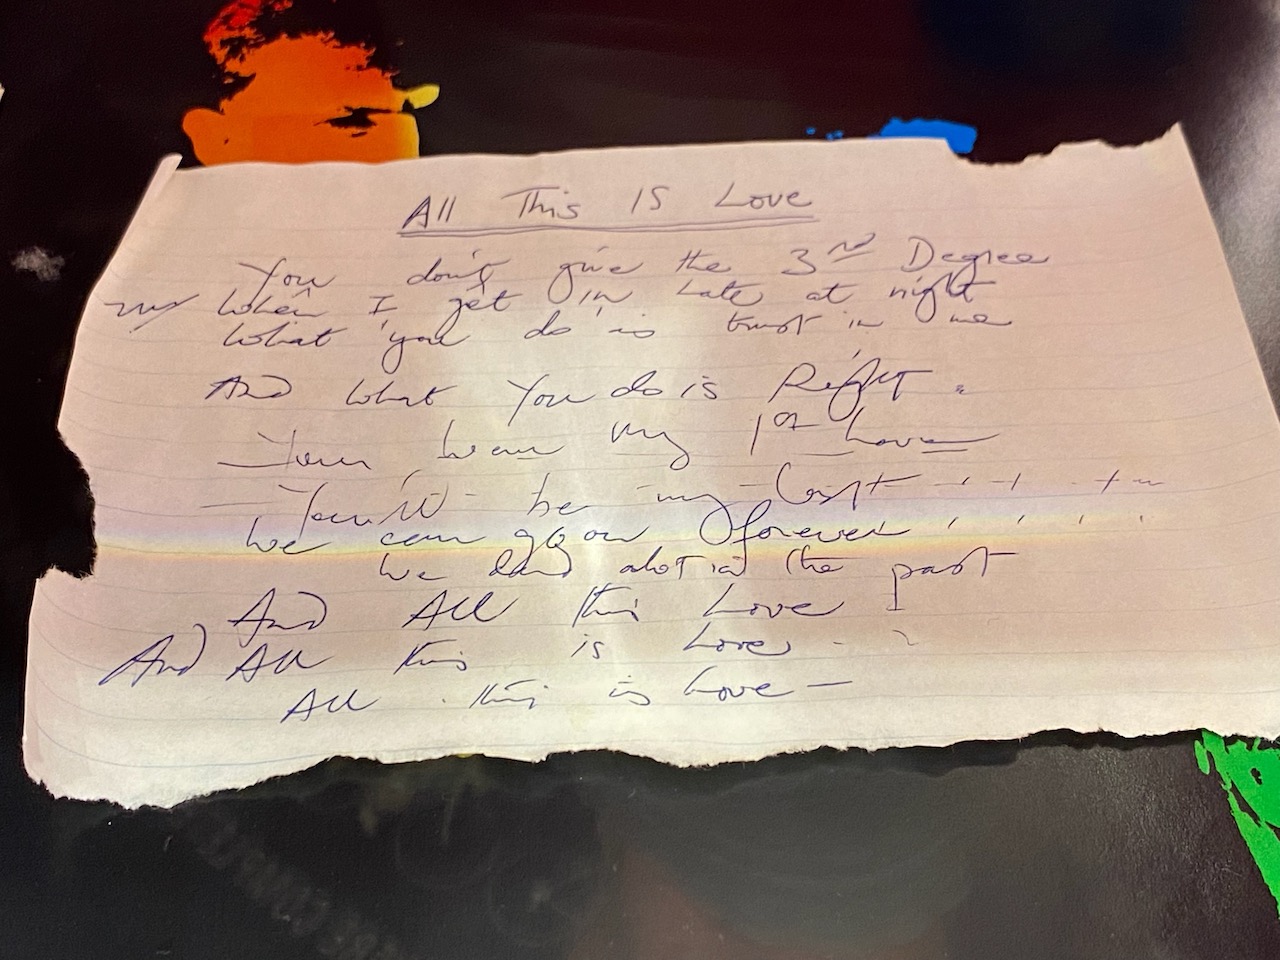 All This IS Love
You don't give the 3rd Degree
When I get in Late at night
What you do is trust in me
And what You do is Right.
Your my 1st Love
You'll be my last
We can go on forever
We in the past
And All this Love
And All this is Love
All this is Love